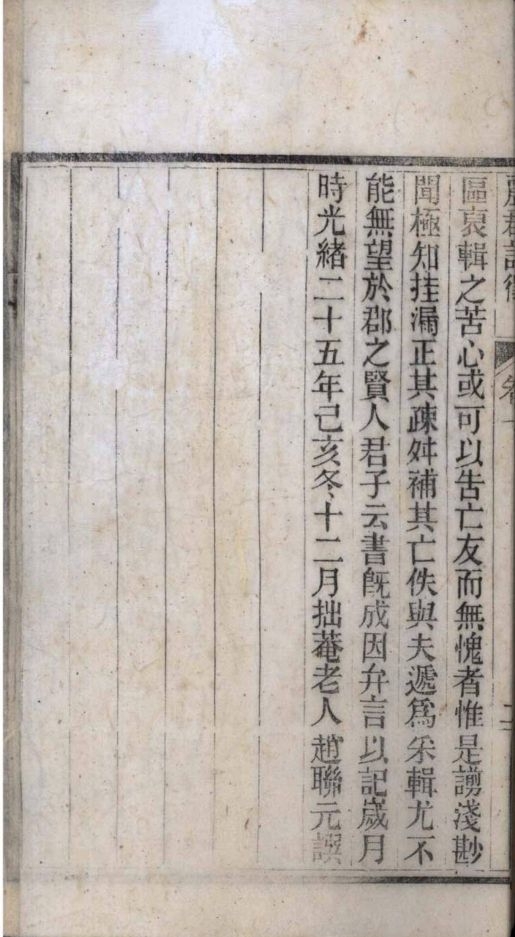 麗郡詩徵 卷 二
區裒輯之苦心或可以告亡友而無愧者惟是謭淺尠
聞極知挂漏正其疎舛補其亡佚與夫遞爲采輯尤不
能無望於郡之賢人君子云書旣成因弁言以記歲月
時光緒二十五年己亥冬十二月拙菴老人趙聯元譔